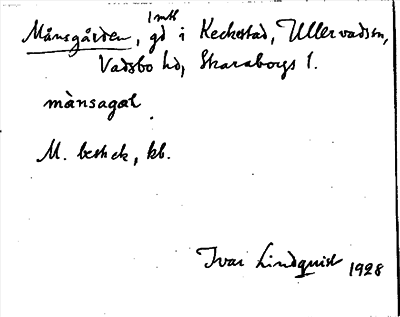 1 mtl
Månsgården, gd i Keckestad, Ullervads sn,
Vadsbo hd, Skaraborgs l.
mànsagaḷ
M. beskek, kb.
Ivar Lindquist 1928